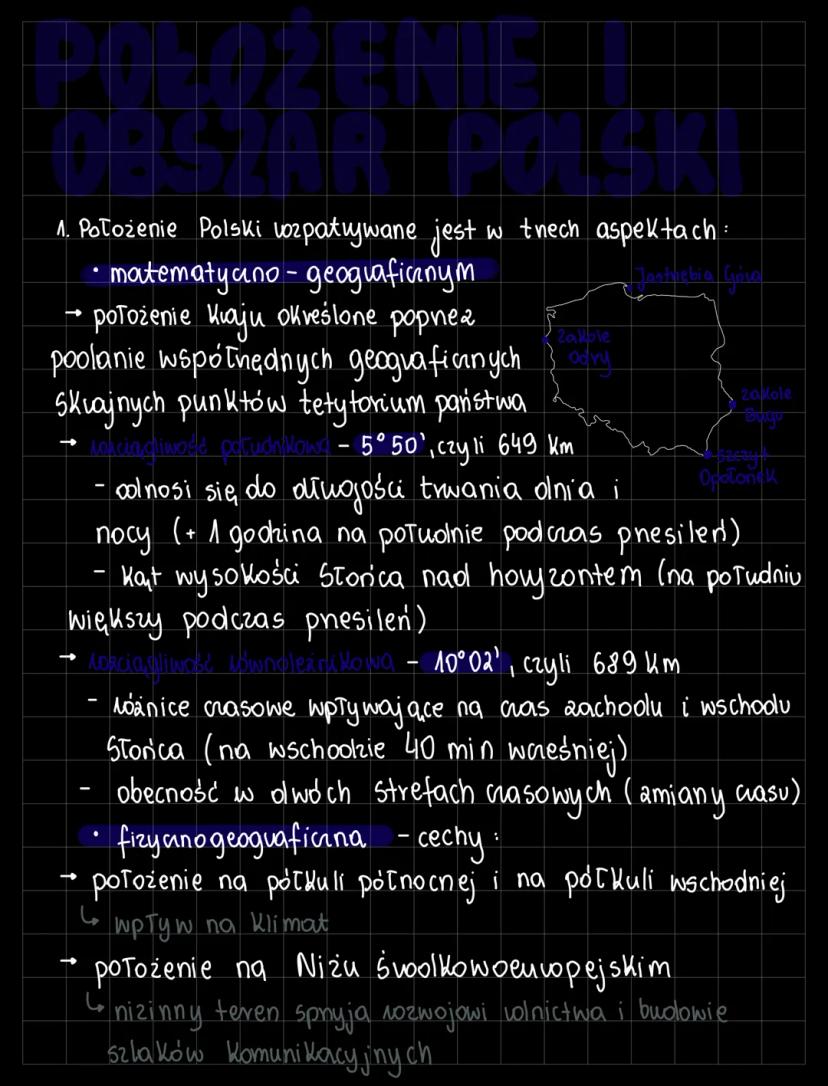 POŁOŻENIE I
OBSZAR POLSKI
1. Położenie Polski rozpatrywane jest w trzech aspektach:
• matematyczno - geograficznym
→ położenie kraju określone poprzez
podanie współrzędnych geograficznych
skrajnych punktów tetytorium państwa
→ rozciągliwość południkowa - 5°50', czyli 649 km
- odnosi się do długości trwania dnia i
nocy (+ 1 godzina na południe podczas przesileń)
- kąt wysokości Słońca nad horyzontem (na południu
większy podczas przesileń)
→ rozciągliwość równoleżnikowa - 10°02', czyli 689 km
- różnice czasowe wpływające na czas zachodu i wschodu
Słońca (na wschodzie 40 min wcześniej)
- obecność w dwóch strefach czasowych (zmiany czasu)
• fizycznogeograficzna - cechy:
→ położenie na półkuli północnej i na półkuli wschodniej
↳ wpływ na klimat
→ położenie na Niżu Środkowoeuropejskim
↳ nizinny teren sprzyja rozwojowi rolnictwa i budowie
szlaków komunikacyjnych
Jastrzębia Góra
zakole
Odry
zakole
Bugu
szczyt
Opołonek